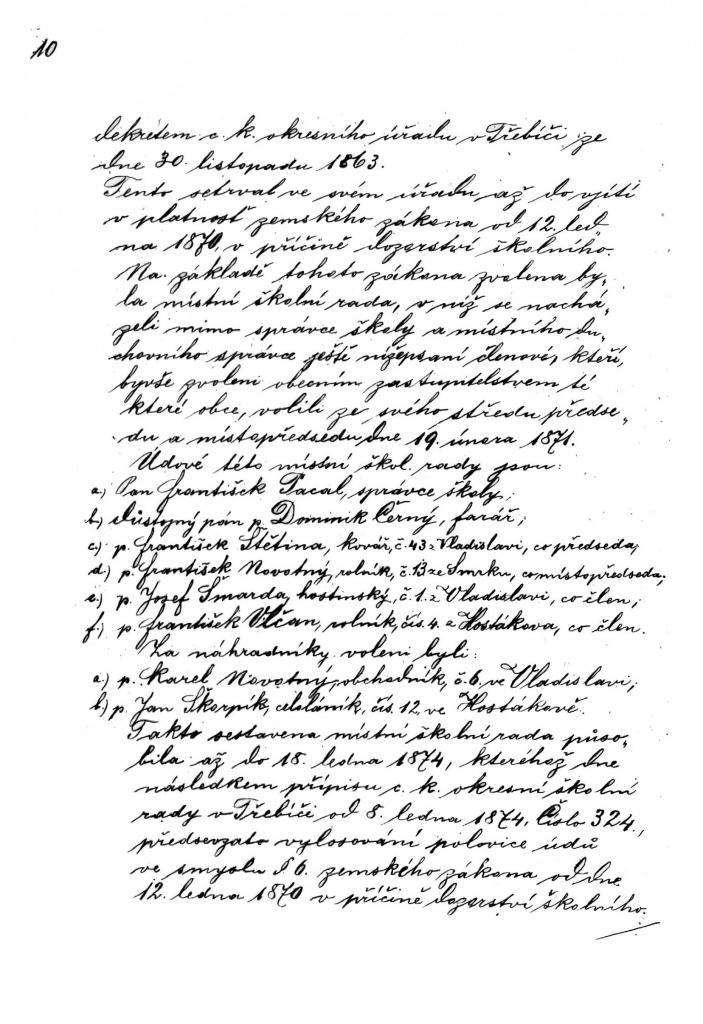 10
dekretem c. k. okresního úřadu v Třebíči ze
dne 30. listopadu 1863.
Tento setrval ve svém úřadu až do vjití
v platnosť zemského zákona od 12. led„
na 1870, v příčině dozorství školního.
Na základě tohoto zákona zvolena by„
la místní školní rada, v níž se nachá„
zeli mimo správce školy a místního du„
chovního správce ještě nížepsaní členové, kteří,
byvše zvoleni obecním zastupitelstvem té
které obce, volili ze svého středu předse„
du a místopředsedu dne 19. února 1871.
Údové této místní škol. rady jsou:
a.) Pan František Pacal, správce školy;
b.) Důstojný pán p. Dominik Černý, farář;
c.) p. František Štětina, kovář, č. 43 z Vladislavi, co předseda;
d.) p. František Novotný, rolník, č. 13 ze Smrku, co místopředseda;
e.) p. Jozef Šmarda, hostinský, č. 1. z Vladislavi, co člen;
f.) p. František Vlčan, rolník, čís. 4. z Hostákova, co člen.
Za náhradníky voleni byli:
a.) p. Karel Novotný, obchodník, č. 6. ve Vladislavi;
b.) p. Jan Škorpík, celoláník, čís. 12, ve Hostákově.
Takto sestavena místní školní rada půso„
bila až do 18. ledna 1874, kteréhož dne
následkem přípisu c. k. okresní školní
rady v Třebíči od 8. ledna 1874, Číslo 324,
předsevzato vylosování polovice údů
ve smyslu § 6. zemského zákona od dne
12. ledna 1870 v příčině dozorství školního.